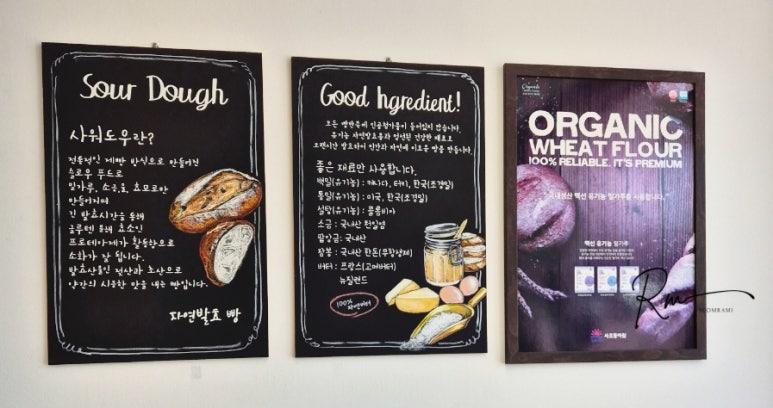 Sour Dough
사워도우란?
전통적인 제빵 방식으로 만들어진
슬로우 푸드로
밀가루, 소금, 물, 효모로만
만들어지며
긴 발효시간을 통해
글루텐 분해 효소인
프로테아제가 활동함으로
소화가 잘 됩니다.
발효산물인 젖산과 초산으로
약간의 시큼한 맛을 내는 빵입니다.
자연발효 빵
Good Ingredient!
모든 빵반죽에 인공첨가물이 들어있지 않습니다.
유기농 자연발효종과 엄선된 건강한 재료로
오랜시간 발효하여 인간과 자연에 이로운 빵을 만듭니다.
좋은 재료만 사용합니다.
백밀(유기농) : 캐나다, 터키, 한국(조경밀)
통밀(유기농) : 미국, 한국(조경밀)
설탕(유기농) : 콜롬비아
소금 : 국내산 천일염
팥앙금: 국내산
잠봉 : 국내산 한돈(무항생제)
버터 : 프랑스(고메버터)
뉴질랜드
100%
자연버터
Organic
ORGANIC
WHEAT FLOUR
100% RELIABLE. IT'S PREMIUM
맥선 유기농 밀가루를 사용합니다.
맥선 유기농 밀가루
사조동아원
Rm